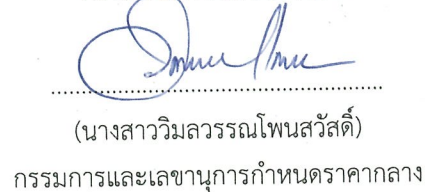 (นางสาววิมลวรรณโพนสวัสดิ์)
กรรมการและเลขานุการกำหนดราคากลาง